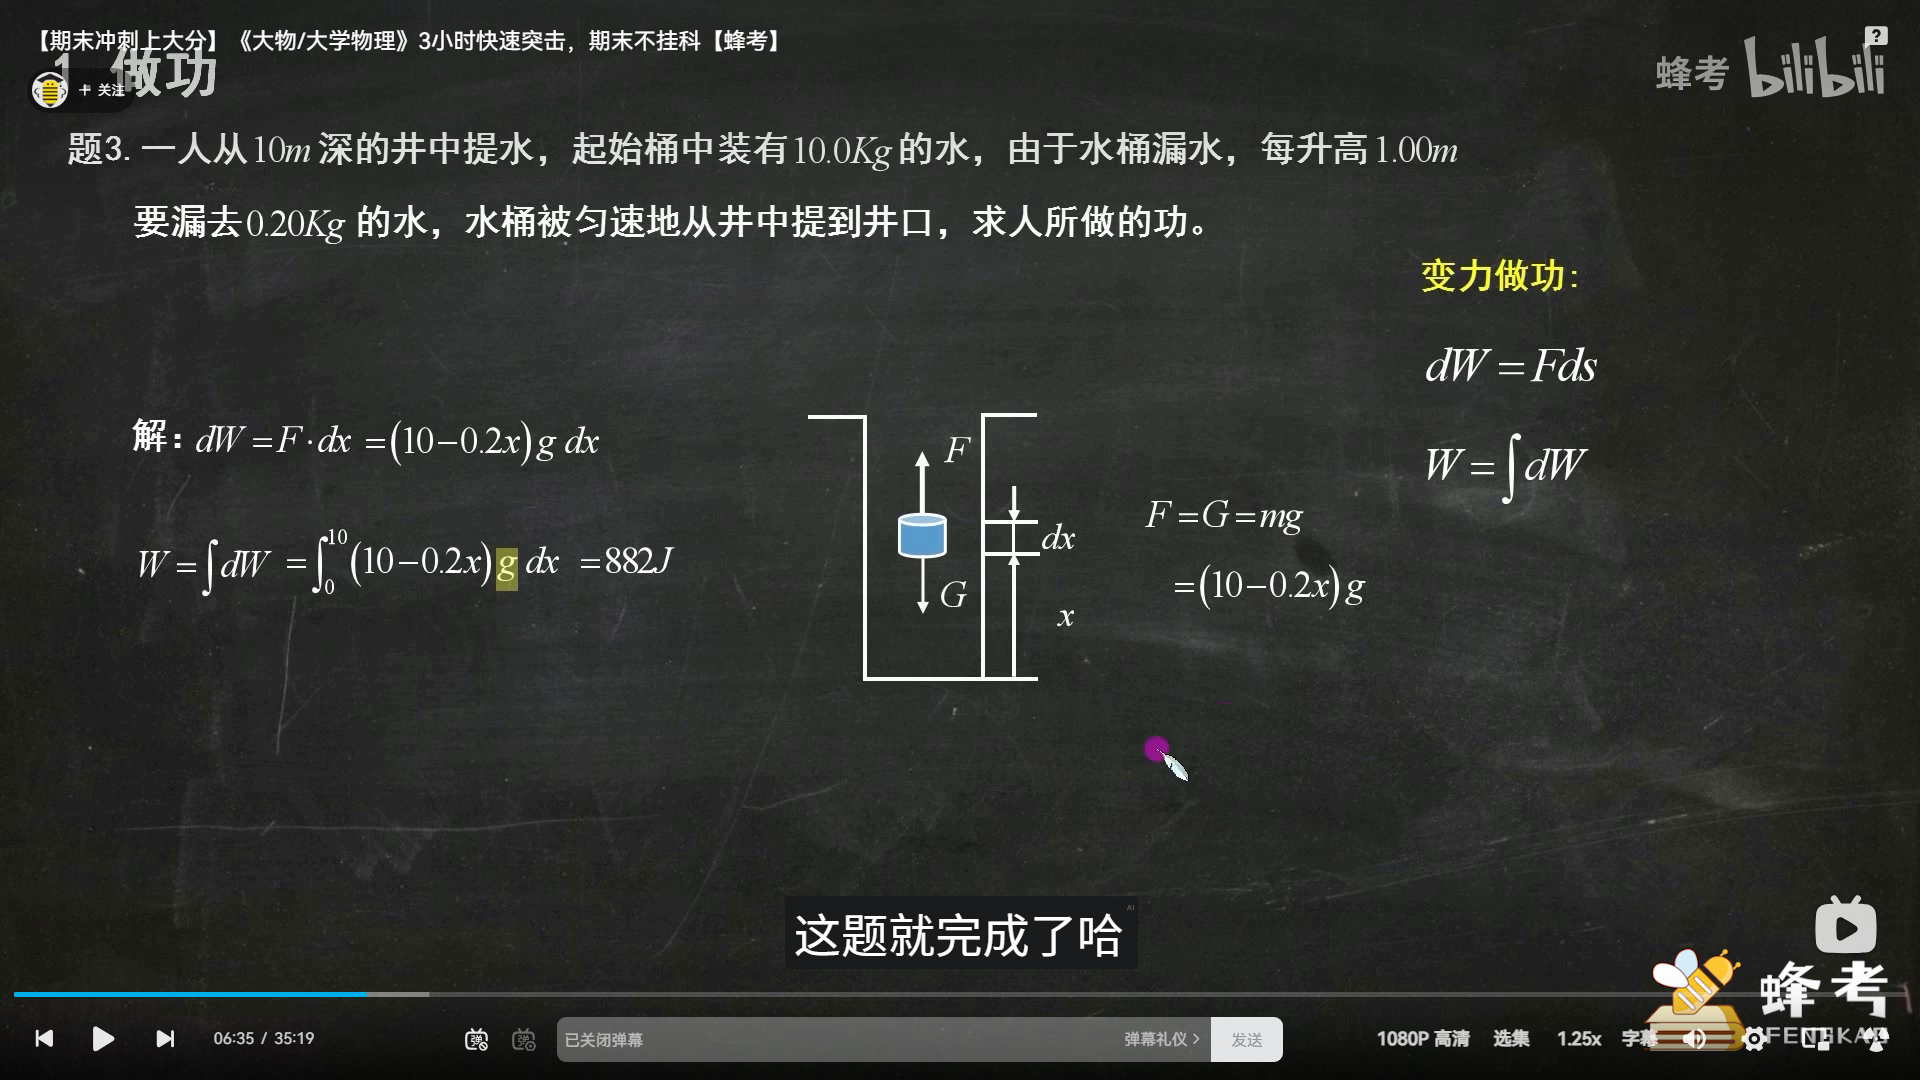 【期末冲刺上大分】《大物/大学物理》3小时快速突击，期末不挂科【蜂考】
1 做功
+ 关注
蜂考 bilibili
题3. 一人从10m深的井中提水，起始桶中装有10.0Kg的水，由于水桶漏水，每升高1.00m
要漏去0.20Kg的水，水桶被匀速地从井中提到井口，求人所做的功。
变力做功:
dW = Fds
W = ∫dW
解: dW = F·dx = (10−0.2x)g dx
W = ∫dW = ∫₀¹⁰ (10−0.2x)g dx = 882J
F
G
dx
x
F = G = mg
= (10−0.2x)g
这题就完成了哈
AI
蜂考
FENGKAO
06:35 / 35:19
弹
弹
已关闭弹幕
弹幕礼仪 >
发送
1080P 高清
选集
1.25x
字幕